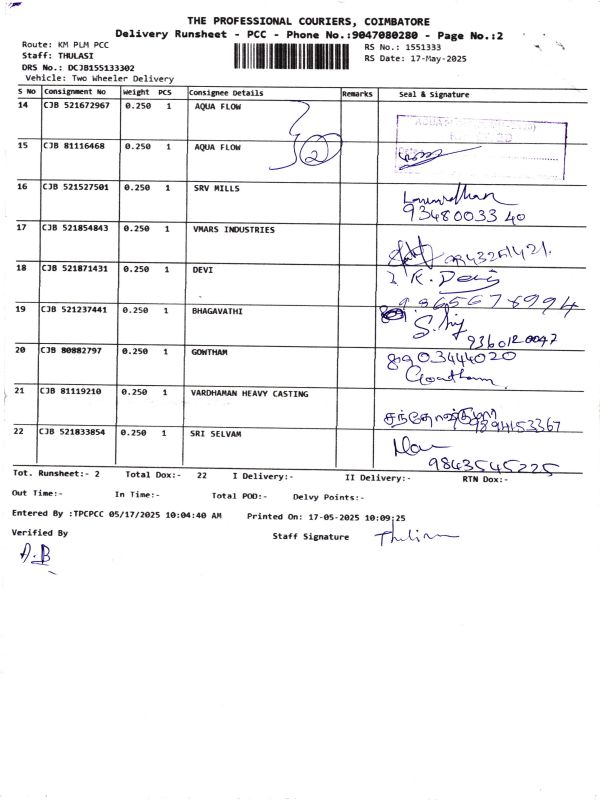 THE PROFESSIONAL COURIERS, COIMBATORE
Delivery Runsheet - PCC - Phone No.:9047080280 - Page No.:2
Route: KM PLM PCC
RS No.: 1551333
Staff: THULASI
RS Date: 17-May-2025
DRS No.: DCJB155133302
Vehicle: Two Wheeler Delivery
S No Consignment No Weight PCS Consignee Details Remarks Seal & Signature
14 CJB 521672967 0.250 1 AQUA FLOW
15 CJB 81116468 0.250 1 AQUA FLOW 2
16 CJB 521527501 0.250 1 SRV MILLS
9348003340
17 CJB 521854843 0.250 1 VMARS INDUSTRIES
18 CJB 521871431 0.250 1 DEVI K. Devi
9365678994
19 CJB 521237441 0.250 1 BHAGAVATHI
9360120047
20 CJB 80882797 0.250 1 GOWTHAM 8903444020
Gowtham
21 CJB 81119210 0.250 1 VARDHAMAN HEAVY CASTING
9894153367
22 CJB 521833854 0.250 1 SRI SELVAM
9843545225
Tot. Runsheet:- 2 Total Dox:- 22 I Delivery:- II Delivery:- RTN Dox:-
Out Time:- In Time:- Total POD:- Delvy Points:-
Entered By :TPCPCC 05/17/2025 10:04:40 AM Printed On: 17-05-2025 10:09:25
Verified By Staff Signature
A.B